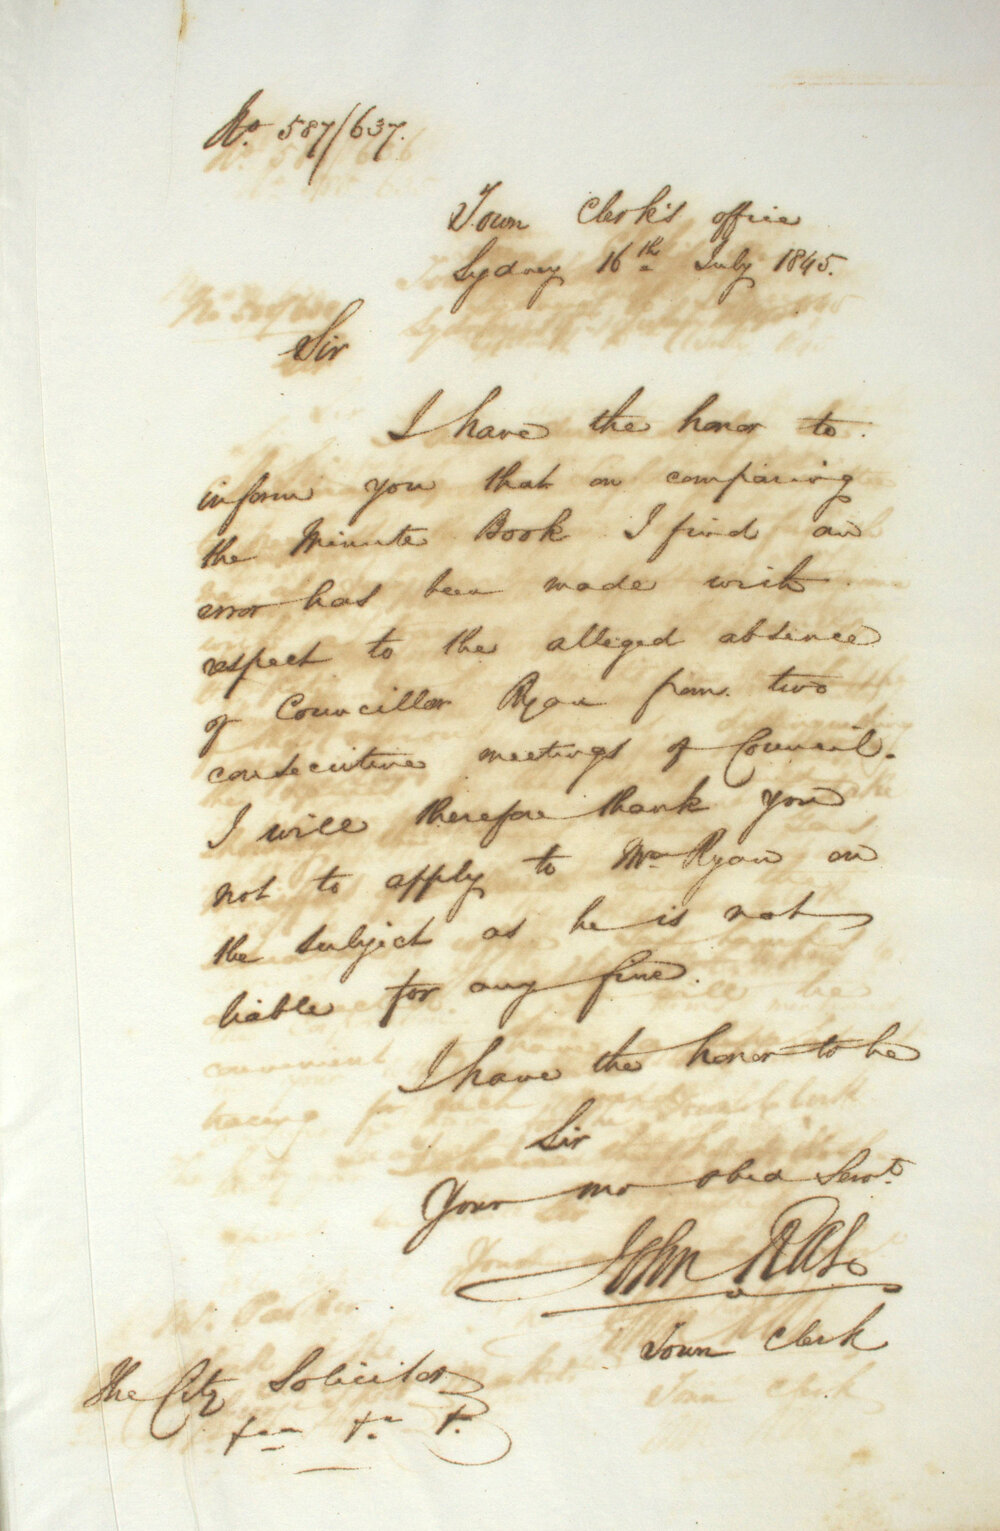 No. 587/637.
Town Clerk's office
Sydney 16th July 1845.
Sir
I have the honor to
inform you that on comparing
the Minute Book I find an
error has been made with
respect to the alleged absence
of Councillor Ryan from two
consecutive meetings of Council.
I will therefore thank you
not to apply to Mr Ryan on
the subject as he is not
liable for any fine.
I have the honor to be
Sir
Your mo obed Servt.
John Rae
Town Clerk
The City Solicitor